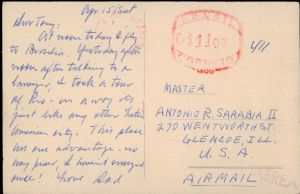 Apr. 15, Sat
Dear Tony:
At noon today I fly
to Brasilia. Yesterday after
noon after talking to a
lawyer, I took a tour
of Rio - in a way very
just like any other Latin
American city. This place
has one advantage - no
may power, I haven't
once! Love Dad
BRASIL
411
MASTER
ANTONIO R. SARABIA II
270 WENTWORTH ST.
GLENCOE, ILL.
U. S. A.
AIRMAIL